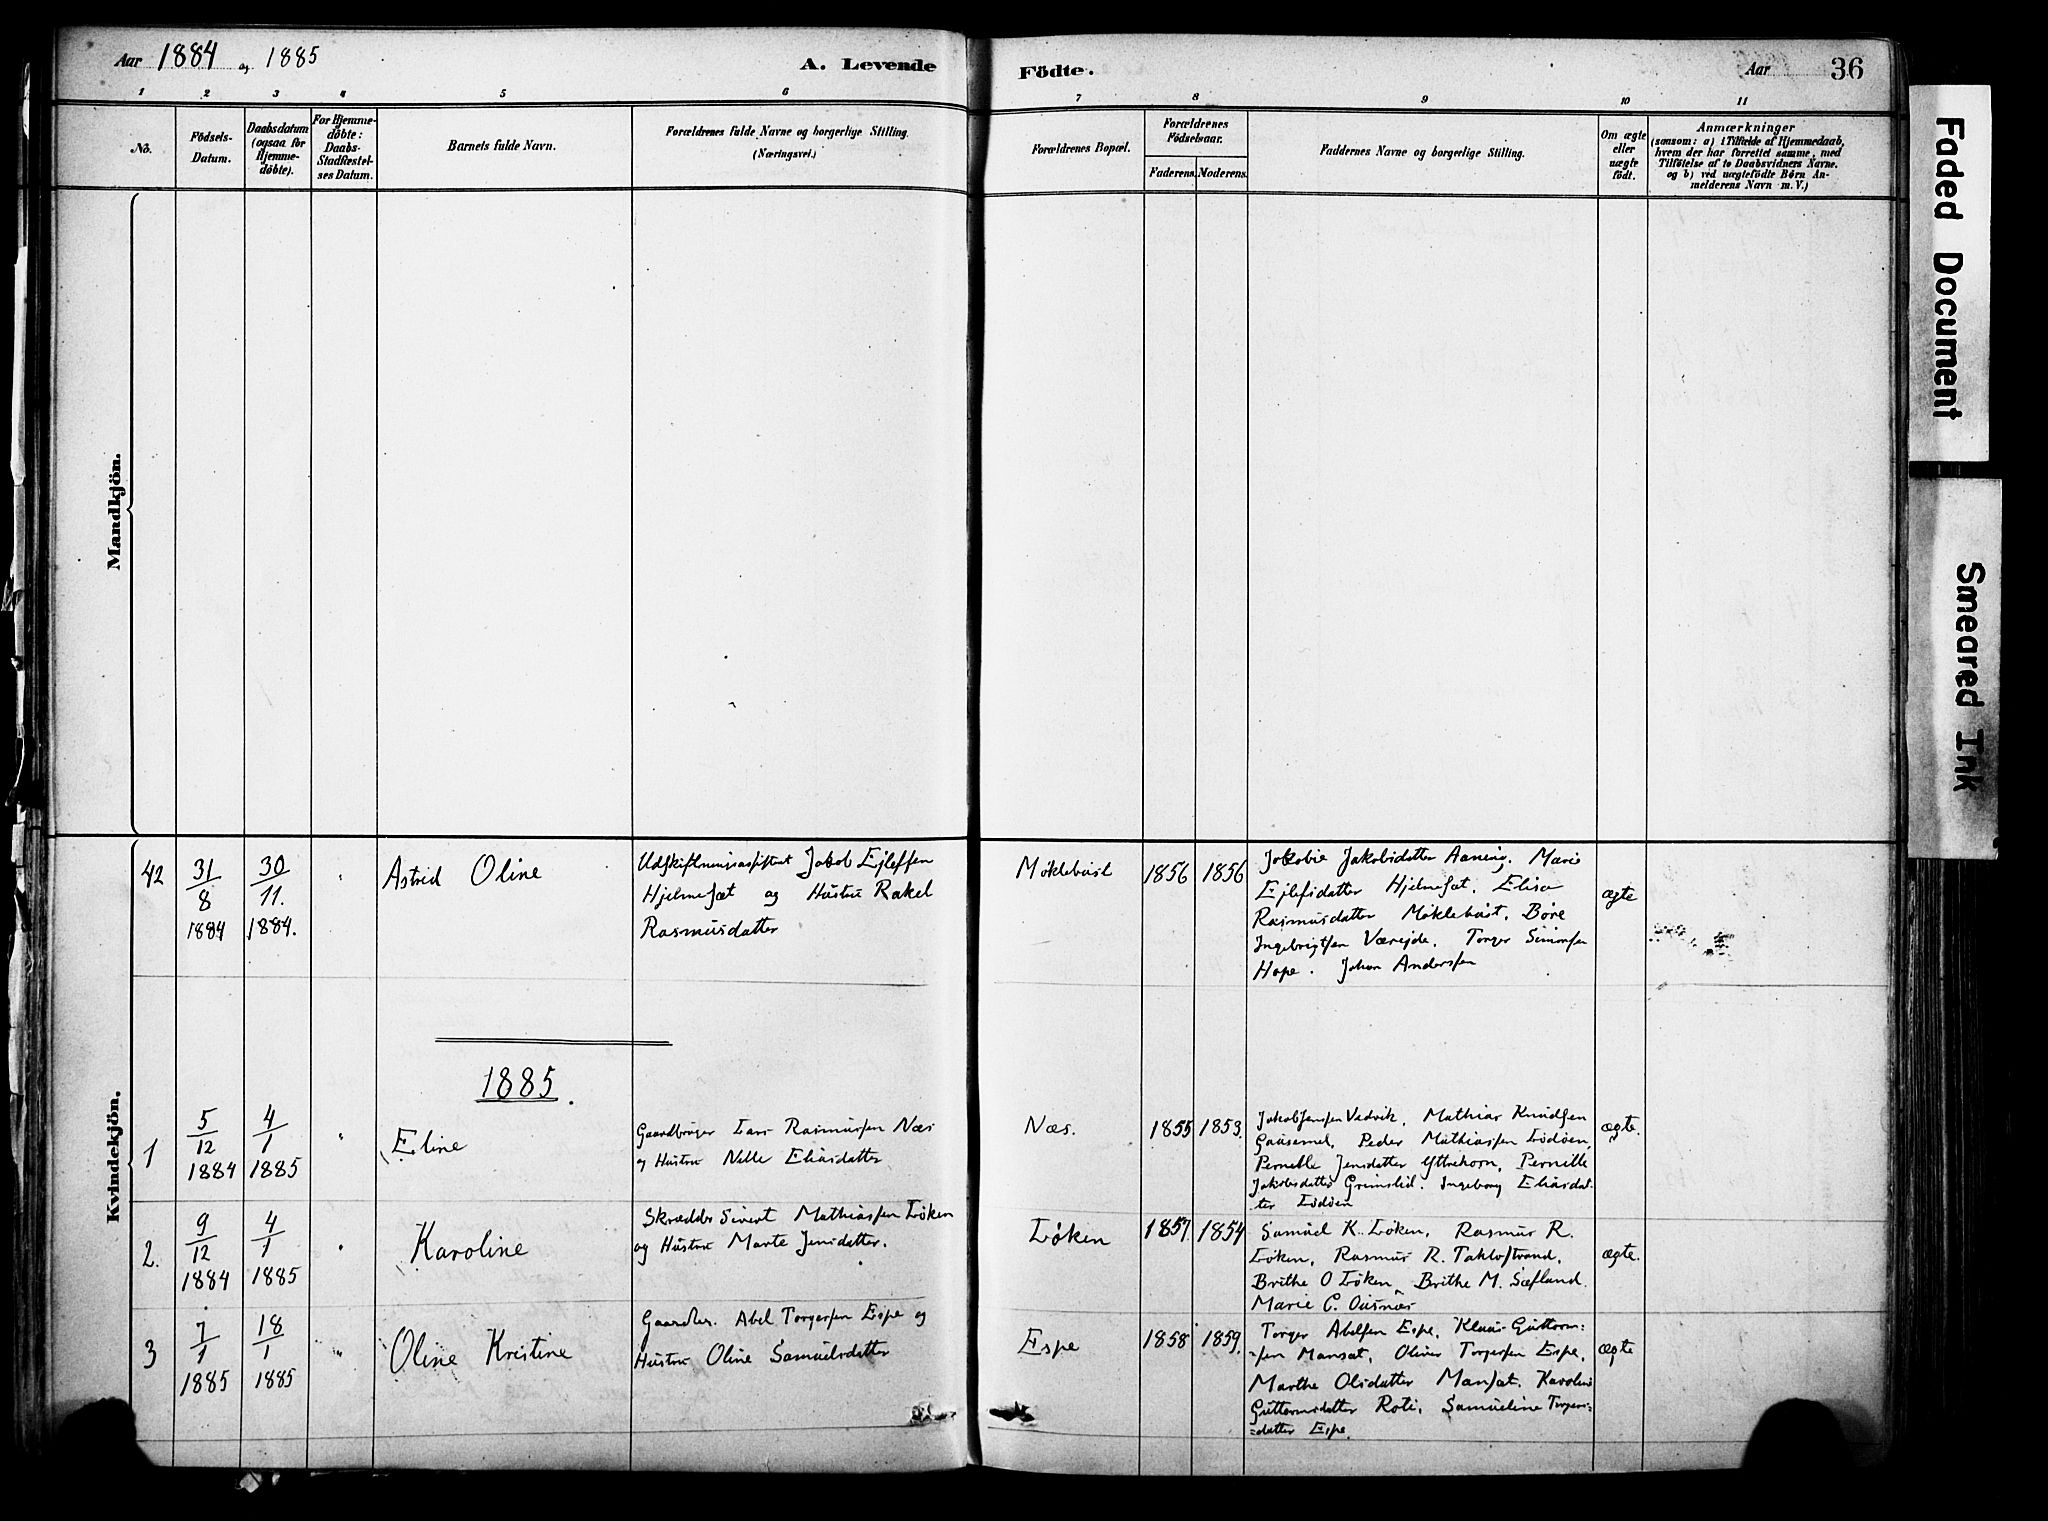 Aar 1884 og 1885
A. Levende
Födte.
Aar
36
1 2 3 4 5 6 7 8 9 10 11
No.
Födsels-
Datum.
Daabsdatum
(ogsaa for
Hjemme-
döbte).
For Hjemme-
döbte:
Daabs-
Stadfæstel-
ses Datum.
Barnets fulde Navn.
Forældrenes fulde Navne og borgerlige Stilling.
(Næringsvei.)
Forældrenes Bopæl.
Forældrenes
Födselsaar.
Faderens. Moderens.
Faddernes Navne og borgerlige Stilling.
Om ægte
eller
uægte
födt.
Anmærkninger
(sansom: a) i Tilfælde af Hjemmedaab,
hvem der har forrettet samme, med
Tilföielse af to Daabsvidners Navne.
og b) ved uægtefödte Börn An-
melderens Navn m. V.)
Mandkjön.
Kvindekjön.
42
31
8
1884
30
11.
1884.
Astrid Oline
Udskiftningsassistent Jakob Ejleffsen
Hjelmesæt og Hustru Rakel
Rasmusdatter
Møklebust
1856 1856
Jakobie Jakobsdatter Aaning. Marie
Ejlefsdatter Hjelmesæt. Elise
Rasmusdatter Møklebust. Børe
Ingebrigtsen Værejde. Torger Simonsen
Hope. Johan Anderssen
ægte
1885.
1
5
12
1884
4
1
1885
Eline
Gaardbruger Lars Rasmussen Næs
og Hustru Nille Eliasdatter
Næs.
1855 1853.
Jakob Jenssen Vedvik, Mathias Knudsen
Gausemel, Peder Mathiassen Lødøen,
Pernille Jensdatter Yttrehorn, Pernille
Jakobsdatter Grimslid. Ingeborg Eliasdat-
ter Lødøen
ægte.
2.
9
12
1884
4
1
1885
Karoline
Skrædder Sivert Mathiassen Løken
og Hustru Marte Jensdatter.
Løken
1857. 1854
Samuel K. Løken, Rasmus R.
Løken, Rasmus R. Taklostrand,
Brithe O Løken, Brithe M. Sæfland.
Marie C. Ousnæs
ægte.
3
7
1
1885
18
1
1885
Oline Kristine
Gaardbr. Abel Torgersen Espe og
Hustru Oline Samuelsdatter
Espe
1858 1859.
Torger Abelsen Espe, Klaus Guttorm=
=sen Mansæt, Oliver Torgersen Espe,
Marthe Olsdatter Mansæt. Karoline
Guttormsdatter Roti, Samueline Torgers=
=datter Espe.
ægte
Faded Document
Smeared Ink